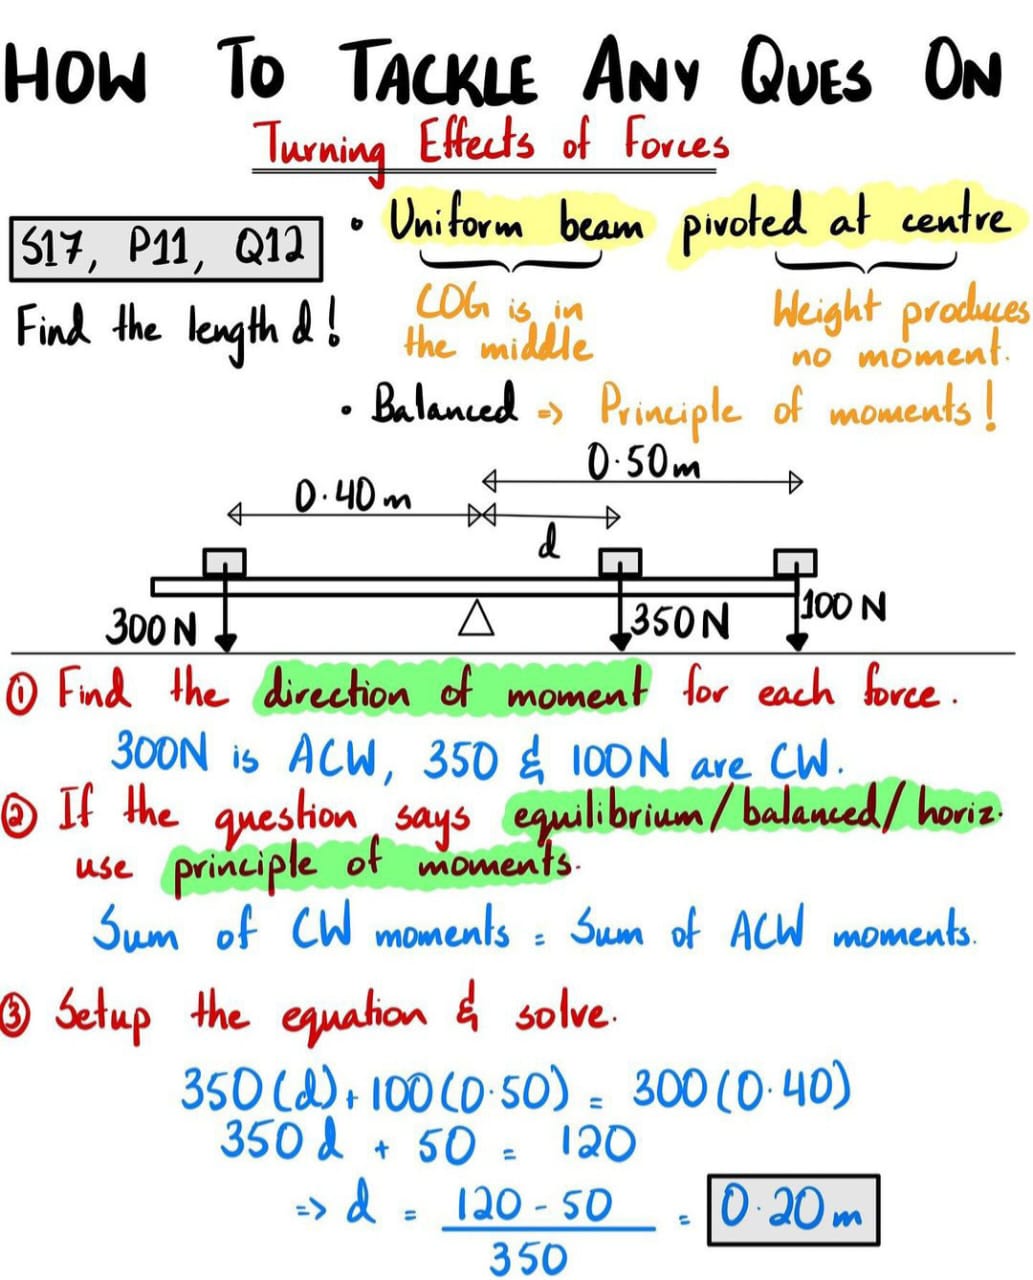 HOW TO TACKLE ANY QUES ON
Turning Effects of Forces
S17, P11, Q12
• Uniform beam pivoted at centre
Find the length d!
COG is in
the middle
Weight produces
no moment.
• Balanced => Principle of moments!
0.50m
0.40m
d
300N
350N
100N
① Find the direction of moment for each force.
300N is ACW, 350 & 100N are CW.
② If the question says equilibrium/balanced/horiz.
use principle of moments.
Sum of CW moments = Sum of ACW moments.
③ Setup the equation & solve.
350(d) + 100(0.50) = 300(0.40)
350d + 50 = 120
=> d = 120 - 50 = 0.20m
350